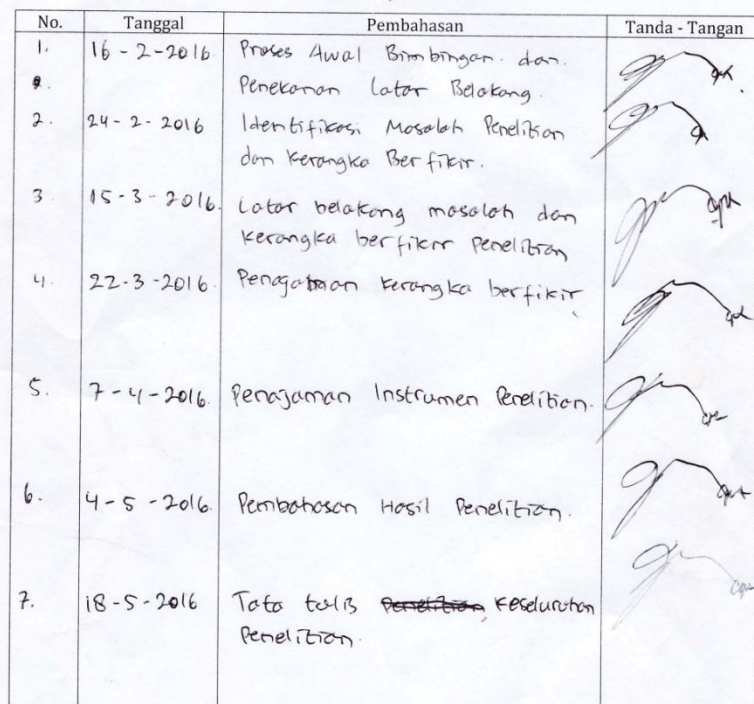 No. Tanggal Pembahasan Tanda - Tangan
1. 16 - 2 - 2016 Proses Awal Bimbingan dan
Penekanan Latar Belakang.
2. 24 - 2 - 2016 Identifikasi Masalah Penelitian
dan Kerangka Berfikir.
3. 15 - 3 - 2016. Latar belakang masalah dan
kerangka berfikir Penelitian
4. 22 - 3 - 2016. kerangka berfikir
5. 7 - 4 - 2016. Penajaman Instrumen Penelitian.
6. 4 - 5 - 2016. Pembahasan Hasil Penelitian.
7. 18 - 5 - 2016 Tata tulis Penelitian keseluruhan
Penelitian.